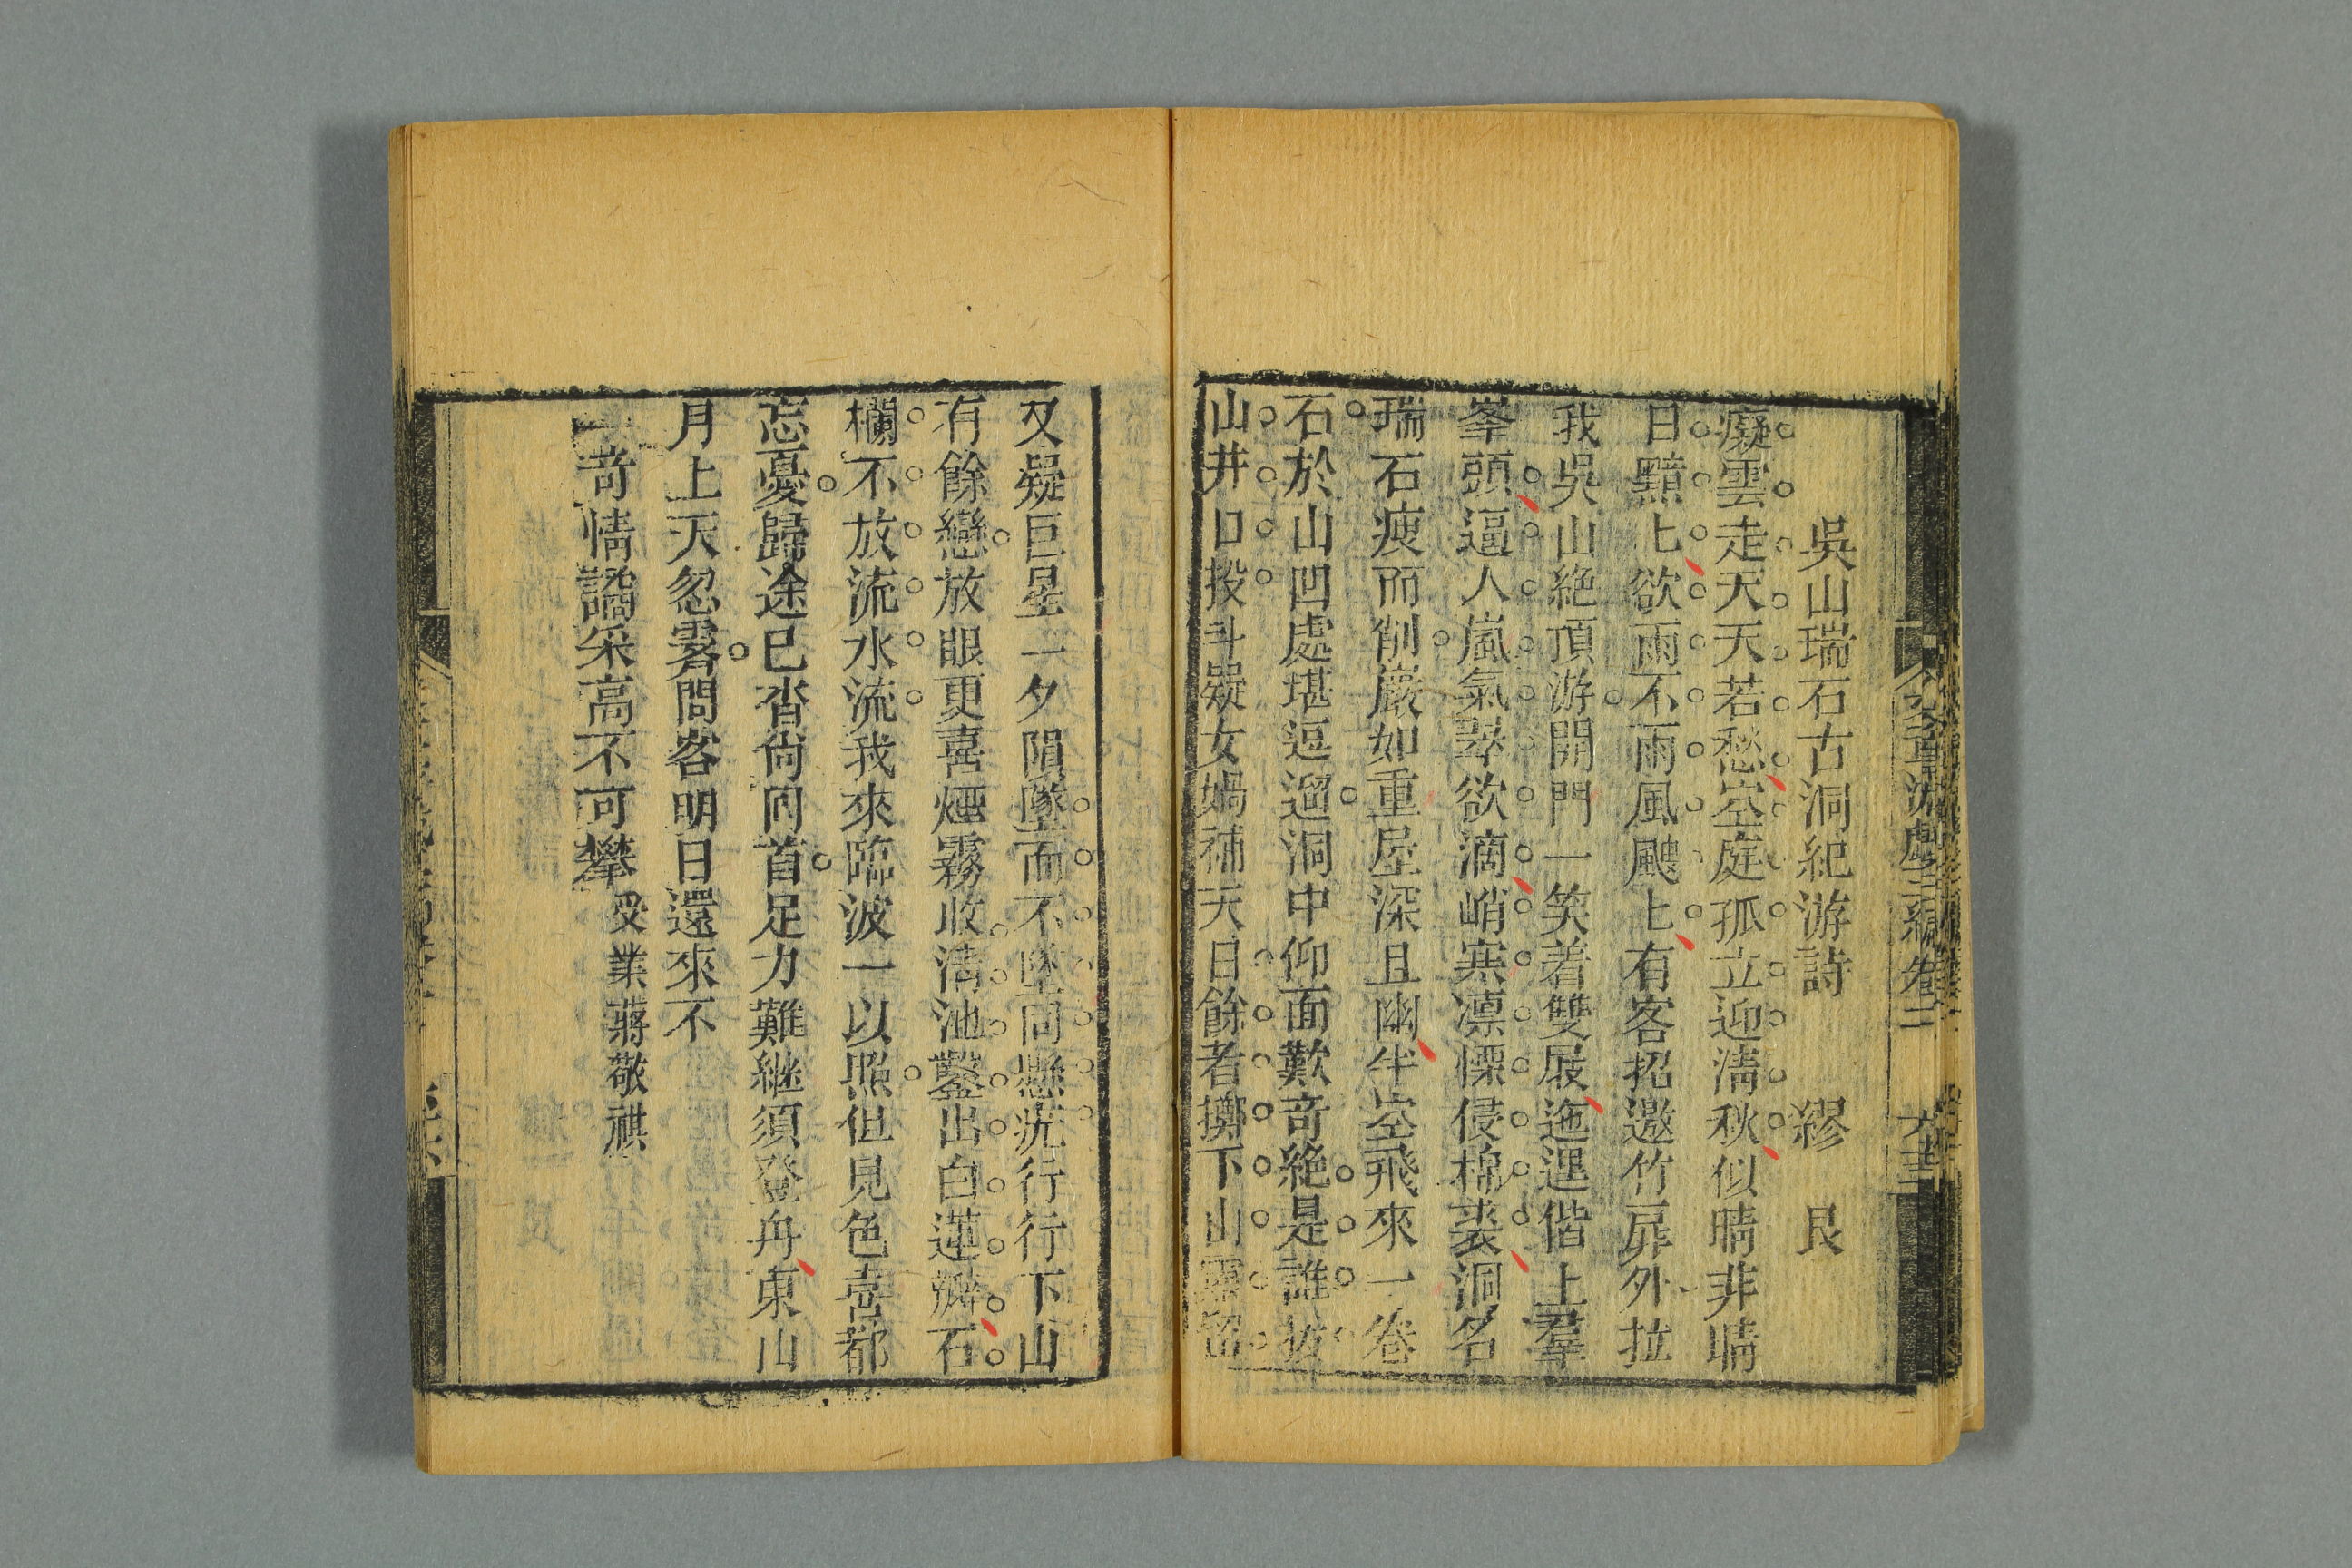 吳山瑞石古洞紀游詩 繆艮
癡雲走天天若愁空庭孤立迎淸秋似晴非晴
日黯上欲雨不雨風颸上有客招邀竹扉外拉
我吳山絶頂游開門一笑着雙屐迤邐偕上羣
峯頭逼人嵐氣翠欲滴峭寒凛慄侵棉裘洞名
瑞石瘦而削巖如重屋深且幽半空飛來一卷
石於山凹處堪逗遛洞中仰面歎奇絶是誰拔
山井口投斗疑女媧補天日餘者擲下山靈留
又疑巨星一夕隕墜而不墜同懸疣行行下山
有餘戀放眼更喜煙霧收淸池鑿出白蓮瓣石
欄不放流水流我來臨波一以照但見色喜都
忘憂歸途已沓尙囘首足力難継須登舟東山
月上天忽霽問客明日還來不
奇情譎采高不可攀 受業蔣敬祺